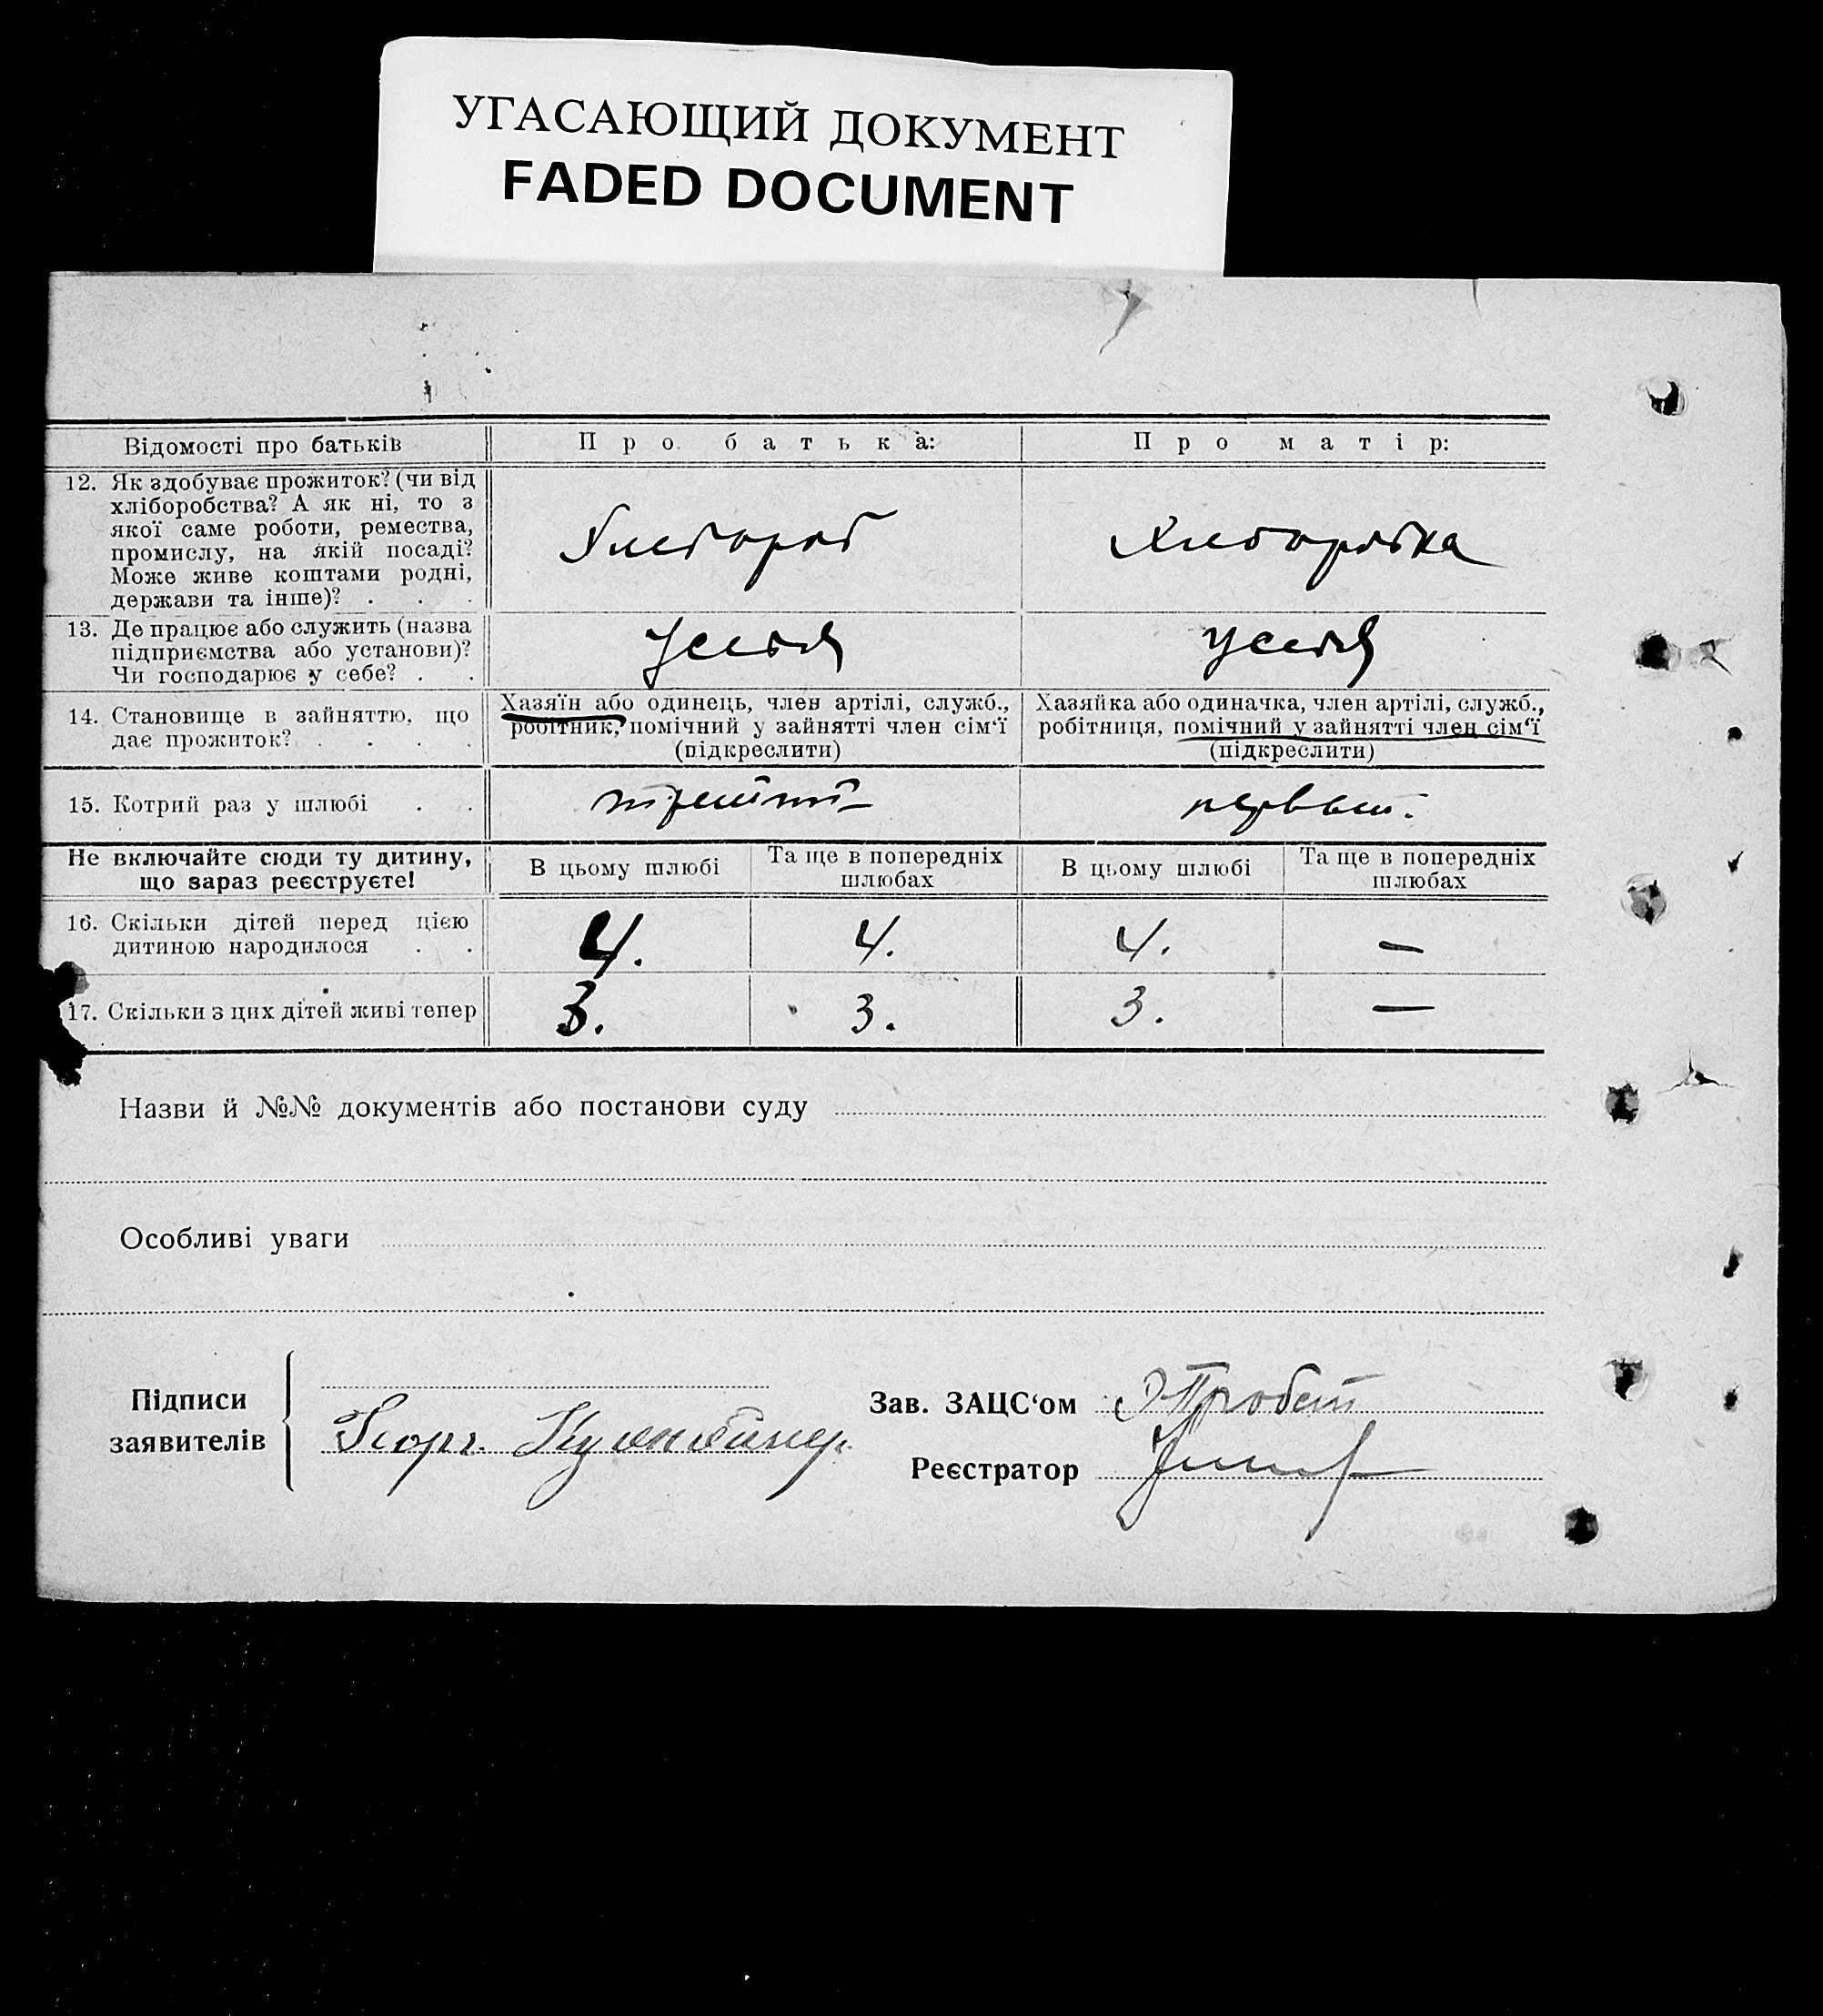 УГАСАЮЩИЙ ДОКУМЕНТ
FADED DOCUMENT
Відомості про батьків
Про батька:
Про матір:
12. Як здобуває прожиток? (чи від
хліборобства? А як ні, то з
якої саме роботи, ремества,
промислу, на якій посаді?
Може живе коштами родні,
держави та інше)? . . .
Хлебороб
Хлеборобка
13. Де працює або служить (назва
підприємства або установи)?
Чи господарює у себе? . .
У себя
У себя
14. Становище в зайняттю, що
дає прожиток? . . . .
Хазяїн або одинець, член артілі, служб.,
робітник, помічний у зайнятті член сім'ї
(підкреслити)
Хазяйка або одиначка, член артілі, служб.,
робітниця, помічний у зайнятті член сім'ї
(підкреслити)
15. Котрий раз у шлюбі . .
третий
первый.
Не включайте сюди ту дитину,
що зараз реєструєте!
В цьому шлюбі
Та ще в попередніх
шлюбах
В цьому шлюбі
Та ще в попередніх
шлюбах
16. Скільки дітей перед цією
дитиною народилося . .
4.
4.
4.
—
17. Скільки з цих дітей живі тепер
3.
3.
3.
—
Назви й №№ документів або постанови суду
Особливі уваги
Підписи
заявителів
Георг.
Зав. ЗАЦС'ом
Реєстратор